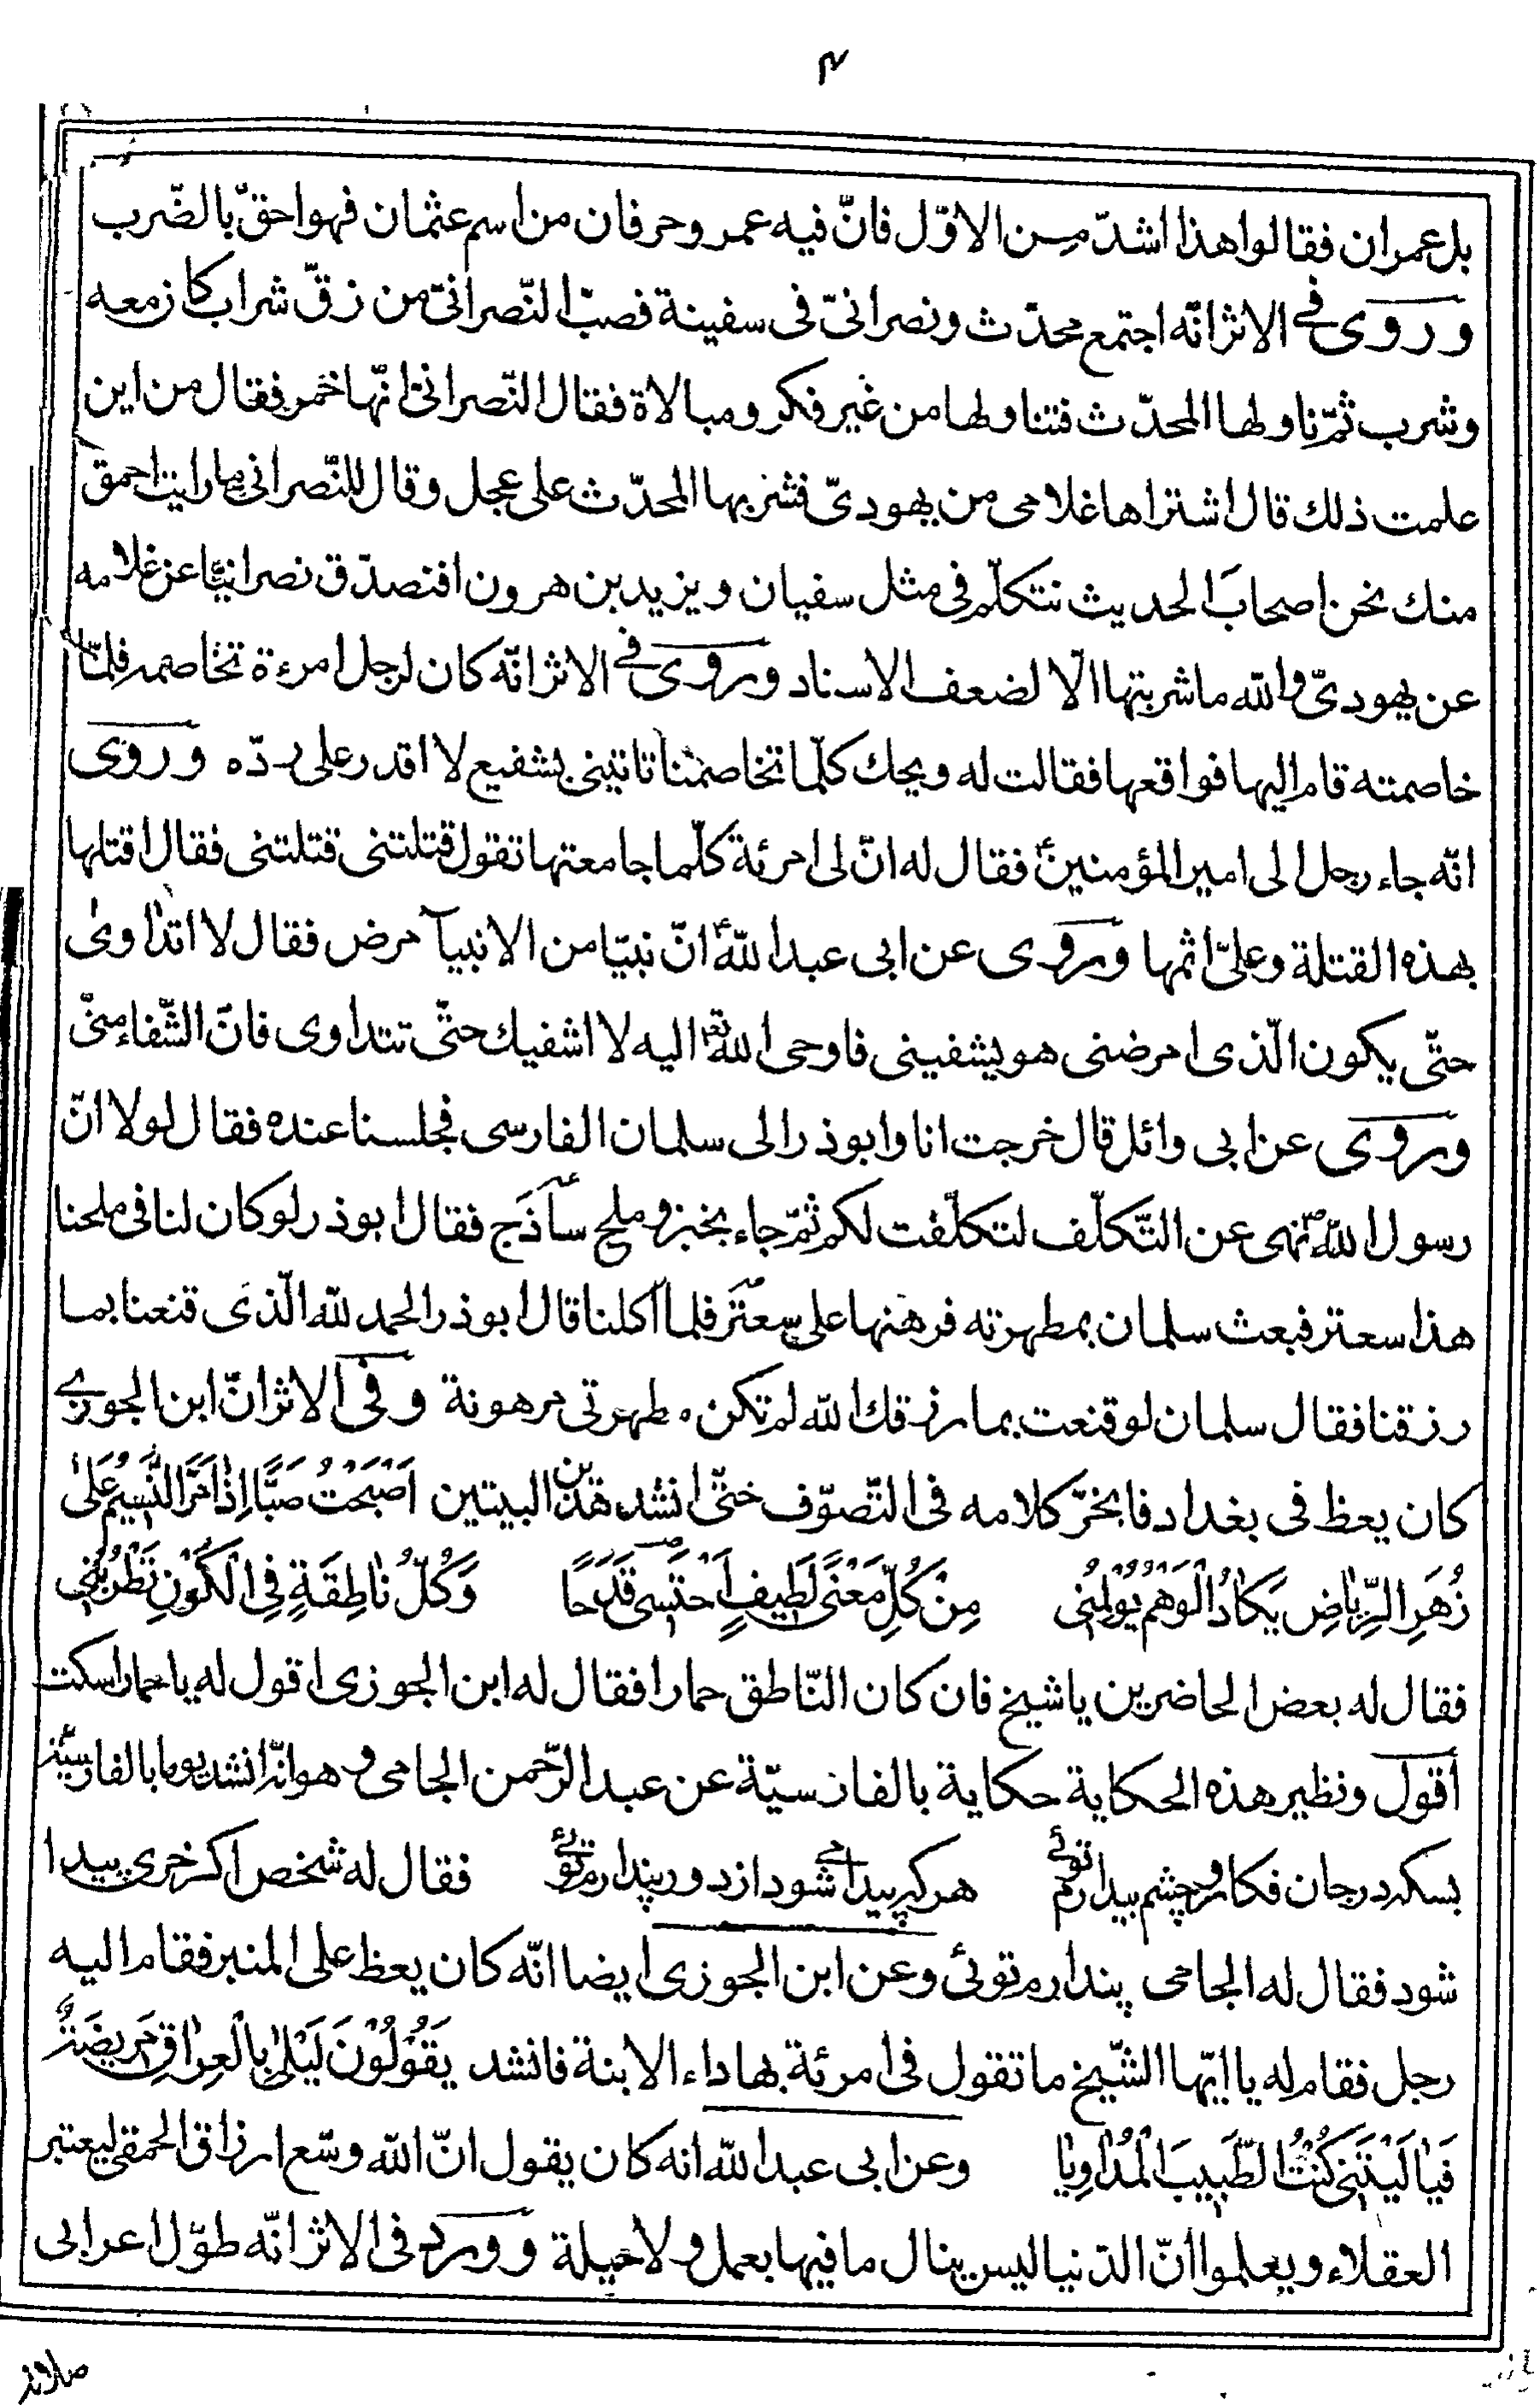 ۴
بل عمران فقالوا هذا اشدّ من الاوّل فانّ فيه عمر وحرفان من اسم عثمان فهو احقّ بالضّرب
وروى فى الاثر انّه اجتمع محدّث ونصرانىّ فى سفينة فصبّ النّصرانىّ من زقّ شراب كان معه
وشرب ثمّ ناولها المحدّث فتناولها من غير فكر ومبالاة فقال النّصرانىّ انّها خمر فقال من اين
علمت ذلك قال اشتراها غلامى من يهودىّ فشربها المحدّث على عجل وقال للنّصرانى ما رايت احمق
منك نحن اصحاب الحديث نتكلّم فى مثل سفيان ويزيد بن هرون افنصدّق نصرانيّا عن غلامه
عن يهودىّ والله ما شربتها الّا لضعف الاسناد وروى فى الاثر انّه كان لرجل امرءة تخاصمه فلمّا
خاصمته قام اليها فواقعها فقالت له ويحك كلّما تخاصمنا تاتينى بشفيع لا اقدر على ردّه وروى
انّه جاء رجل الى امير المؤمنينؑ فقال له انّ لى امرئة كلّما جامعتها تقول قتلتنى قتلتنى فقال اقتلها
بهذه القتلة وعلىّ اثمها وروى عن ابى عبد اللهؑ انّ نبيّا من الانبيآ مرض فقال لا اتداوى
حتّى يكون الّذى امرضنى هو يشفينى فاوحى الله تعه اليه لا اشفيك حتّى تتداوى فانّ الشّفاء منّى
وروى عن ابى وائل قال خرجت انا وابوذر الى سلمان الفارسى فجلسنا عنده فقال لولا انّ
رسول اللهؐ نهى عن التّكلّف لتكلّفت لكم ثمّ جاء بخبز وملح ساذَج فقال ابوذر لو كان لنا فى ملحنا
هذا سعتر فبعث سلمان بمطهرته فرهنها على سعتر فلما اكلنا قال ابوذر الحمد لله الّذى قنعنا بما
رزقنا فقال سلمان لو قنعت بما رزقك الله لم تكن مطهرتى مرهونة وفى الاثر انّ ابن الجوزى
كان يعظ فى بغداد فانجرّ كلامه فى التّصوّف حتّى انشد هذين البيتين اَصْبَحْتُ صَبًّا اِذٰا مَرَّ النَّسِيمُ عَلىٰ
زَهَرِ الرِّيٰاضِ يَكٰادُ الْوَهْمُ يُولِمُنِى مِنْ كُلِّ مَعْنًى لَطِيفٍ اَحْتَسِى قَدَحًا وَكُلُّ نٰاطِقَةٍ فِى الْكَوْنِ تَطْرُبُنِى
فقال له بعض الحاضرين يا شيخ فان كان النّاطق حمارا فقال له ابن الجوزى اقول له يا حمار اسكت
أقول ونظير هذه الحكاية حكاية بالفارسيّة عن عبد الرّحمن الجامى وهو انّه انشد يوما بالفارسيّة
بسكه در جان فكار و چشم بيدارم توئى هركه پيدا مى شود از دور پندارم توئى فقال له شخص اكر خرى پيدا
شود فقال له الجامى پندارم توئى وعن ابن الجوزى ايضا انّه كان يعظ على المنبر فقام اليه
رجل فقام له يا ايّها الشّيخ ما تقول فى امرئة بها داء الابنة فانشد يَقُولُونَ لَيْلىٰ بِالْعِرٰاقِ مَرِيضَةٌ
فَيٰا لَيْتَنِى كُنْتُ الطَّبِيبَ الْمُدٰاوِيٰا وعن ابى عبد الله انه كان يقول انّ الله وسّع ارزاق الحمقى ليعتبر
العقلاء ويعلموا انّ الدّنيا ليس ينال ما فيها بعمل ولا حيلة وورد فى الاثر انّه طوّل اعرابى
صلاته